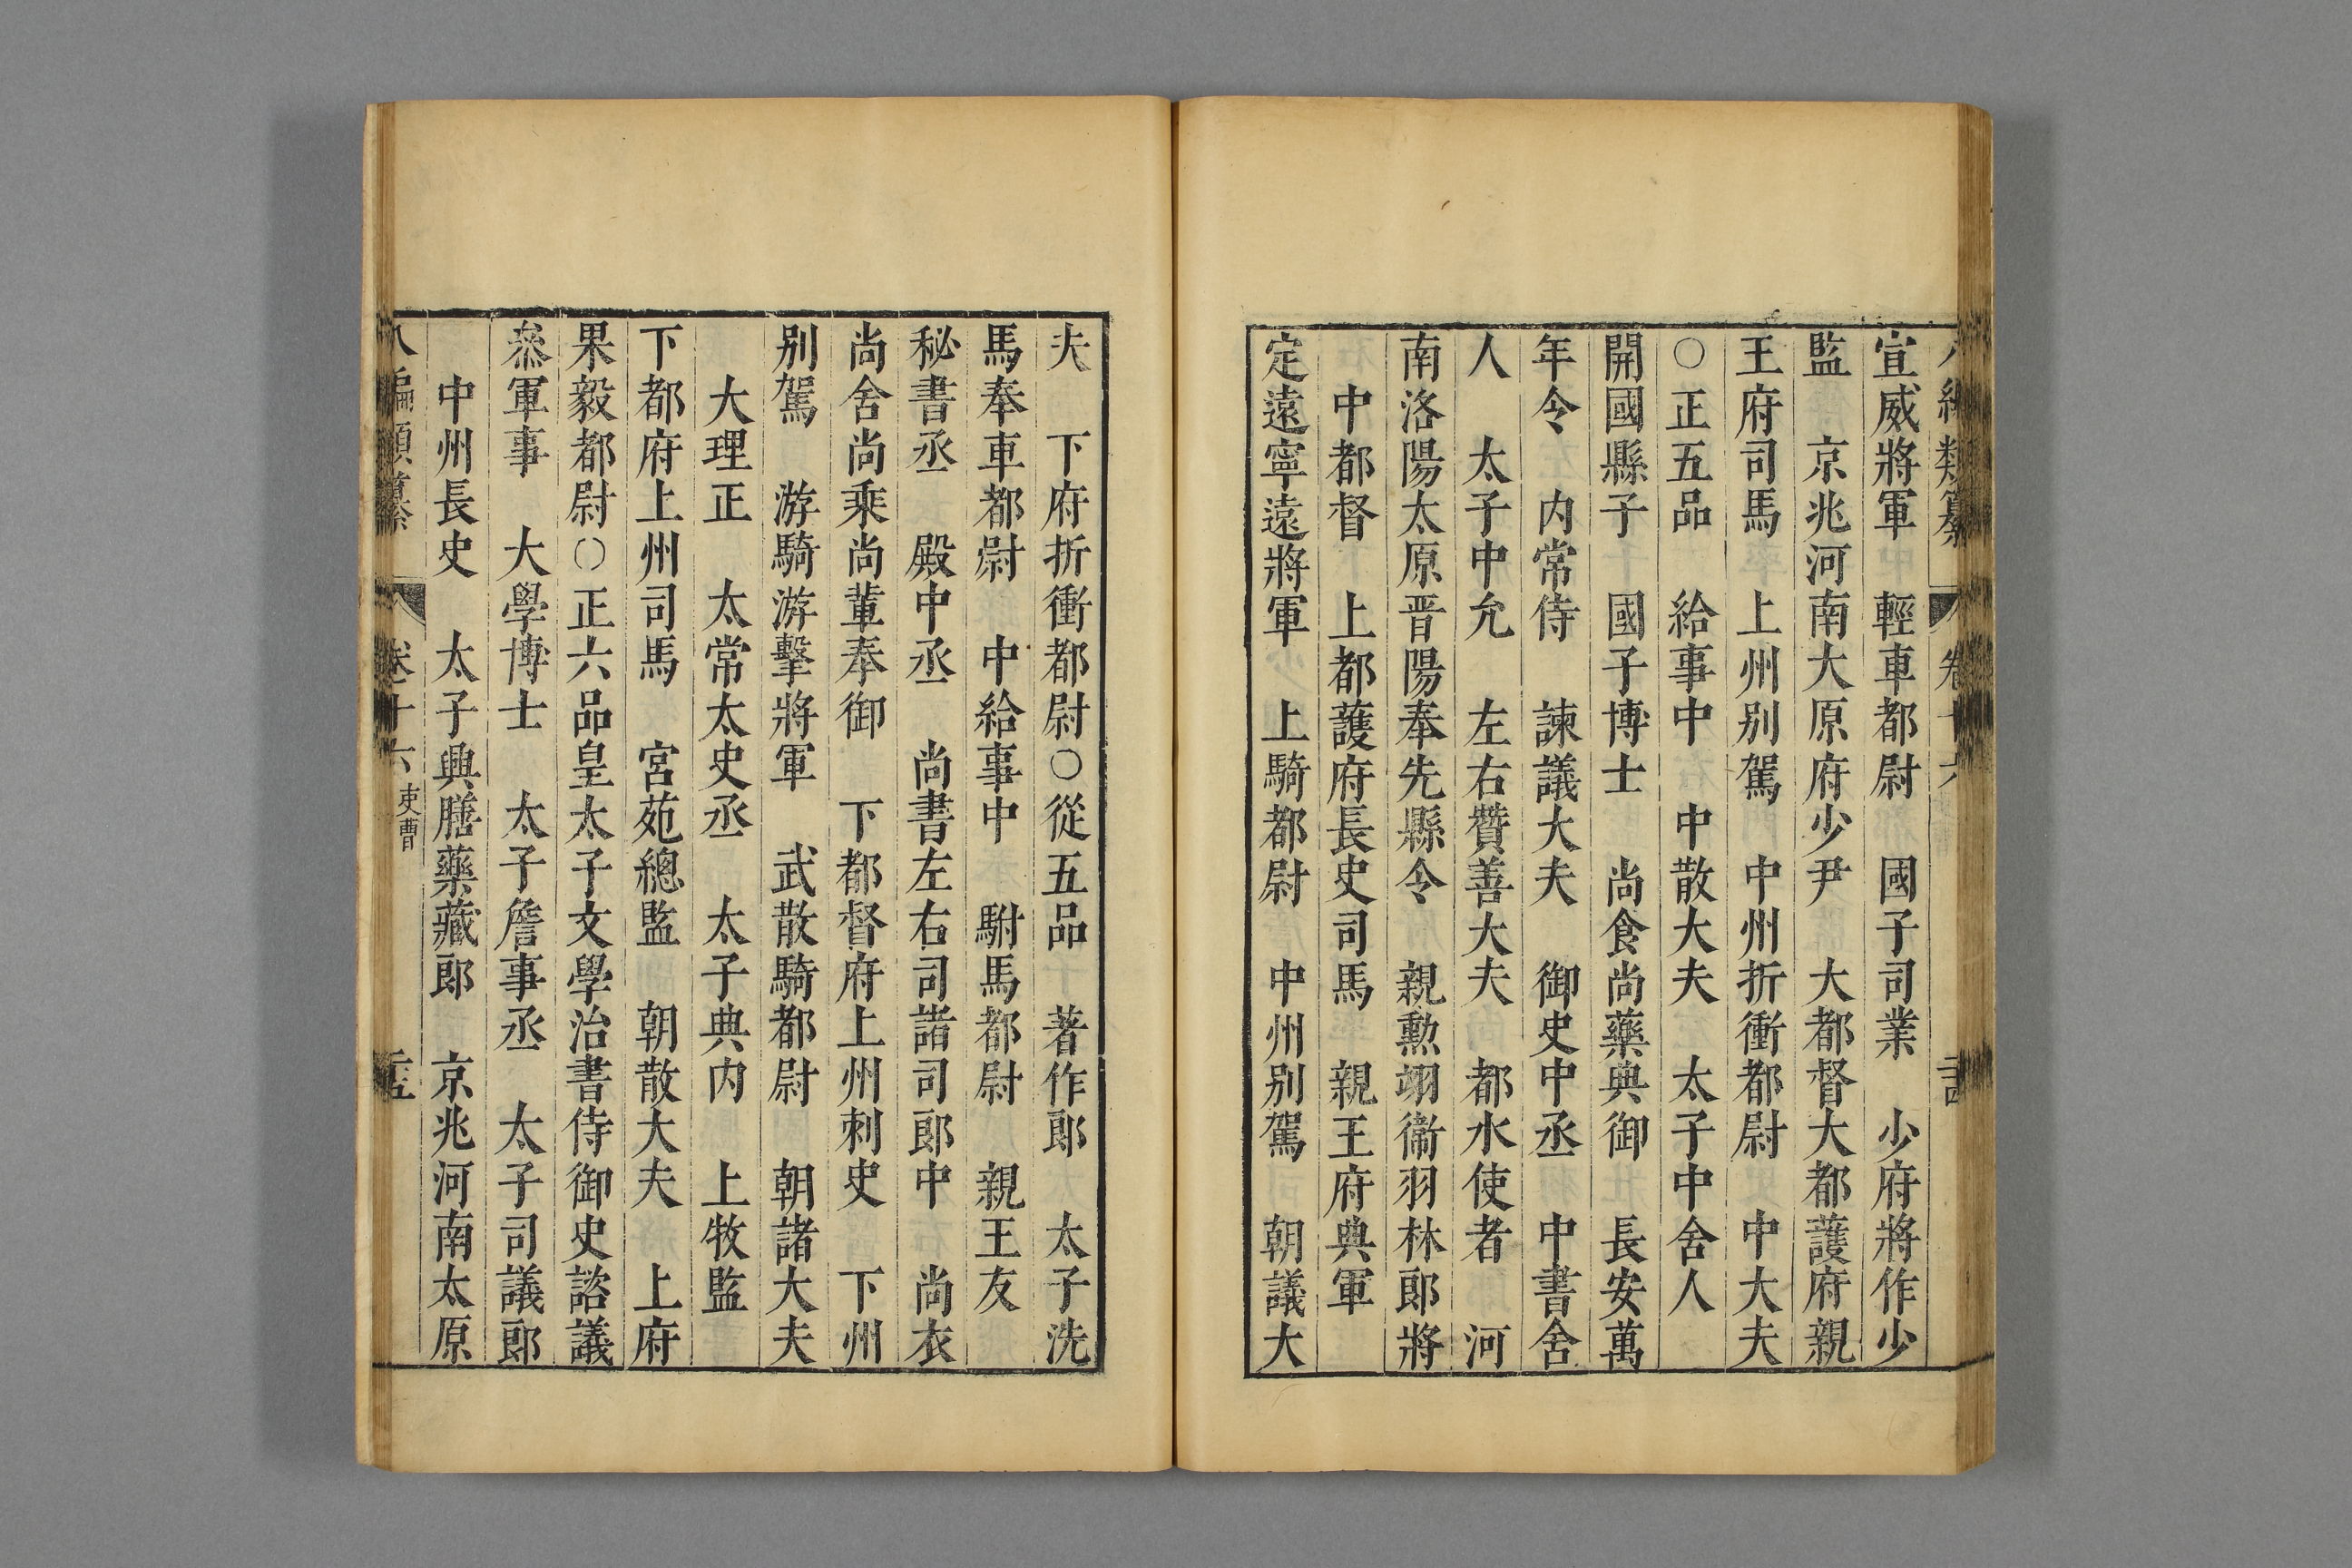 宣威將軍　輕車都尉　國子司業　少府將作少
監　京兆河南大原府少尹　大都督大都護府親
王府司馬　上州別駕　中州折衝都尉　中大夫
○正五品　給事中　中散大夫　太子中舍人
開國縣子　國子博士　尚食尚藥典御　長安萬
年令　內常侍　諫議大夫　御史中丞　中書舍
人　太子中允　左右贊善大夫　都水使者　河
南洛陽太原晉陽奉先縣令　親勲翊衞羽林郎將
中都督　上都護府長史司馬　親王府典軍
定遠寧遠將軍　上騎都尉　中州別駕　朝議大
夫　下府折衝都尉○從五品　著作郎　太子洗
馬奉車都尉　中給事中　駙馬都尉　親王友
秘書丞　殿中丞　尚書左右司諸司郎中　尚衣
尚舍尚乘尚輦奉御　下都督府上州刺史　下州
別駕　游騎游擊將軍　武散騎都尉　朝諸大夫
大理正　太常太史丞　太子典內　上牧監
下都府上州司馬　宮苑總監　朝散大夫　上府
果毅都尉○正六品皇太子文學治書侍御史諮議
叅軍事　大學博士　太子詹事丞　太子司議郎
中州長史　太子典膳藥藏郎　京兆河南太原
八編類纂　卷十六　吏曹